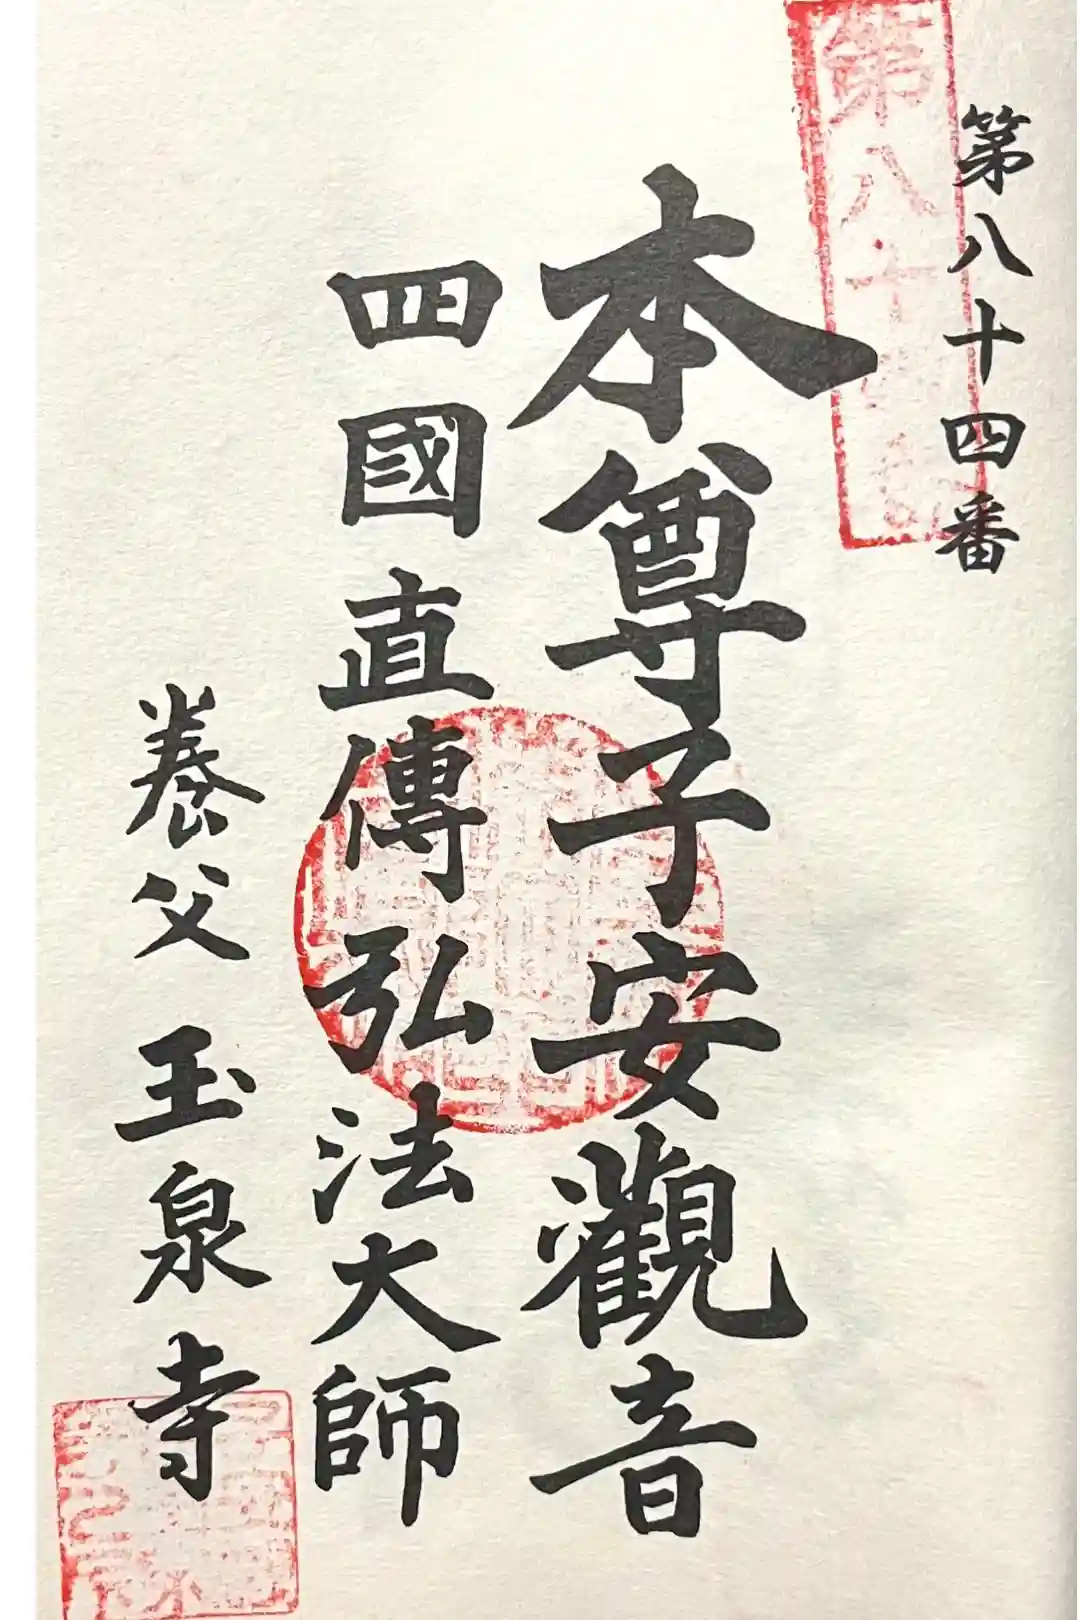 第八十四番
本尊子安觀音
四國直傳弘法大師
養父 玉泉寺
第八十